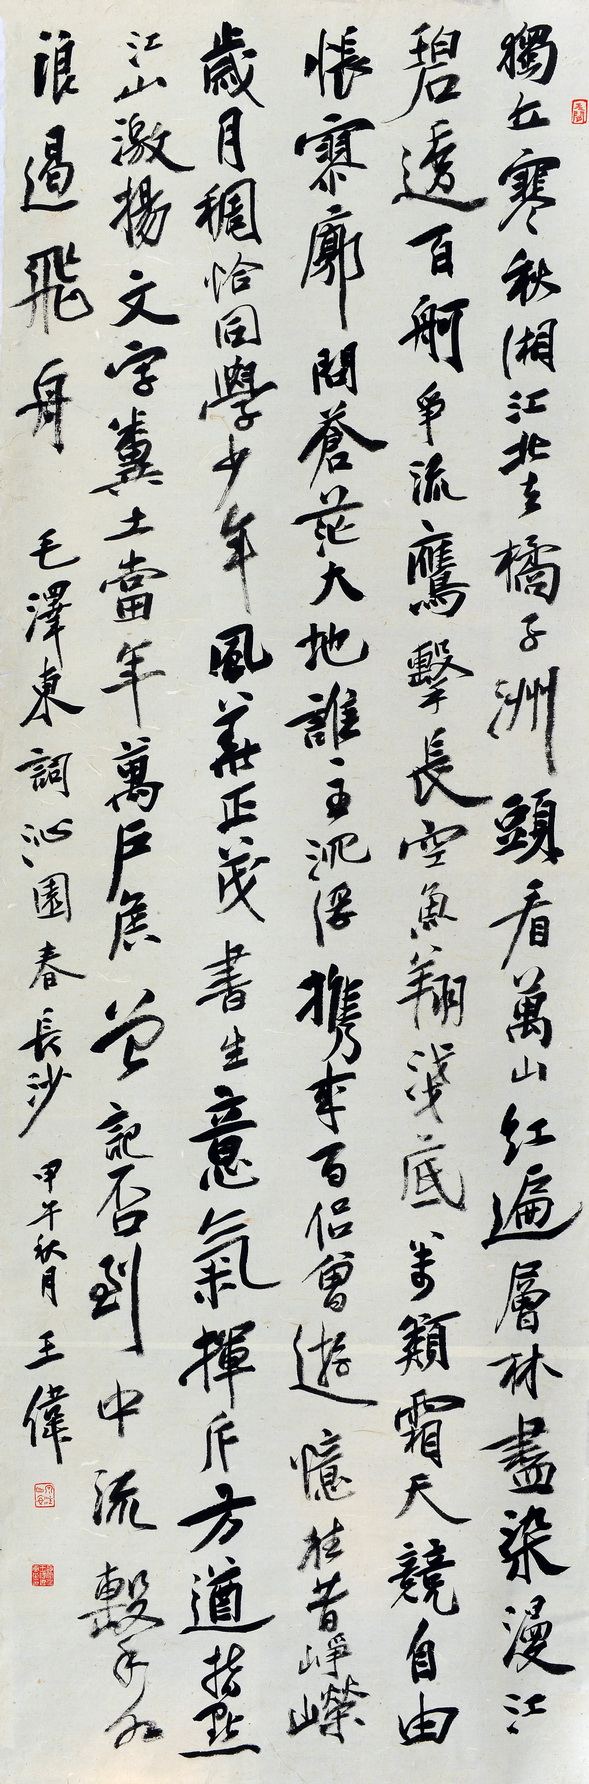 獨立寒秋湘江北去橘子洲頭看萬山紅遍層林盡染漫江
碧透百舸爭流鷹擊長空魚翔淺底萬類霜天競自由
悵寥廓問蒼茫大地誰主沉浮攜來百侶曾遊憶往昔崢嶸
歲月稠恰同學少年風華正茂書生意氣揮斥方遒指點
江山激揚文字糞土當年萬戶侯曾記否到中流擊水
浪遏飛舟 毛澤東詞沁園春長沙 甲午秋月 王偉